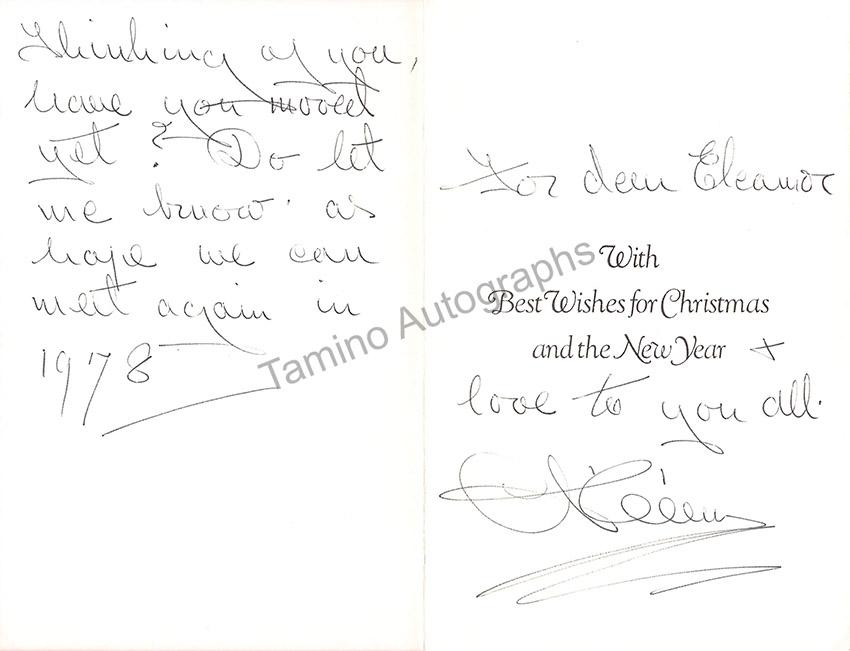 Thinking of you,
have you moved
yet? Do let
me know as
hope we can
meet again in
1978
For dear Eleanor
With
Best Wishes for Christmas
and the New Year +
love to you all.
Tamino Autographs